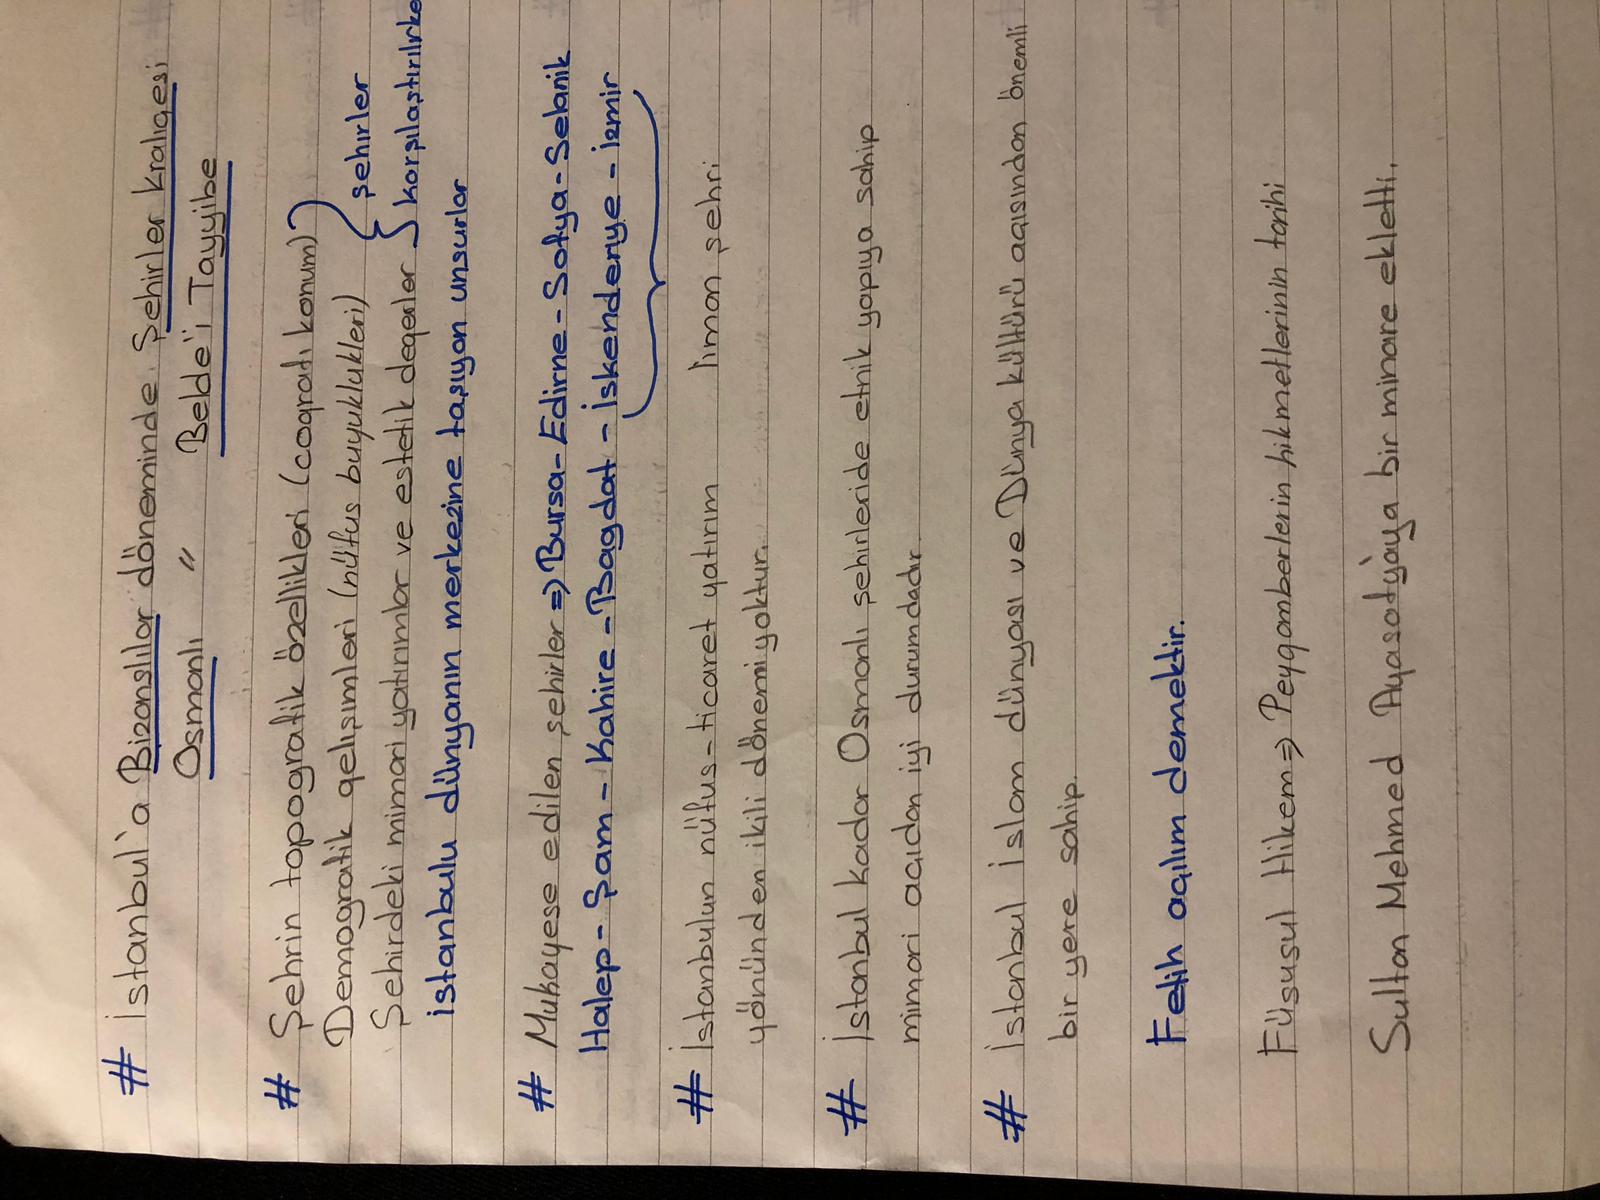 # İstanbul'a Bizanslılar döneminde Şehirler Kraliçesi
Osmanlı " Belde'i Tayyibe
# Şehrin topografik özellikleri (coğrafi konum)
Demografik gelişimleri (nüfus büyüklükleri) şehirler
Şehirdeki mimari yatırımlar ve estetik değerler karşılaştırılırke
istanbulu dünyanın merkezine taşıyan unsurlar
# Mukayese edilen şehirler => Bursa - Edirne - Sofya - Selanik
Halep - Şam - Kahire - Bagdat - İskenderiye - izmir
# İstanbulun nüfus - ticaret yatırım liman şehri
yönünden ikili dönemi yoktur.
# İstanbul kadar Osmanlı şehirleride etnik yapıya sahip
mimari açıdan iyi durumdadır.
# İstanbul İslam dünyası ve Dünya kültürü açısından önemli
bir yere sahip.
Fetih açılım demektir.
Füsusul Hikem => Peygamberlerin hikmetlerinin tarihi
Sultan Mehmed Ayasofya'ya bir minare ekletti.